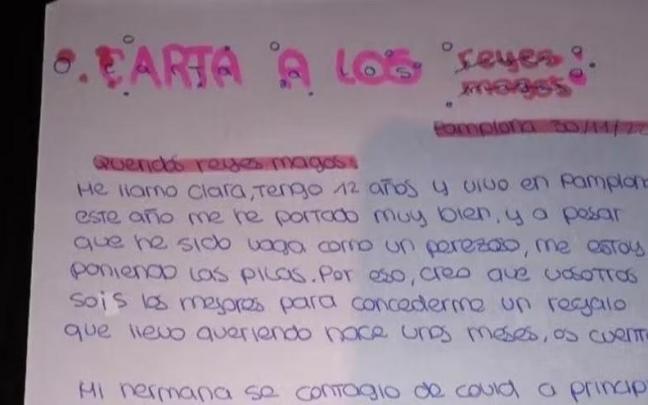 CARTA A LOS reyes magos
Pamplona 30/11/2
Queridos reyes magos:
Me llamo Clara, Tengo 12 años y vivo en Pamplon
este año me he portado muy bien, y a pesar
que he sido vaga como un perezoso, me estoy
poniendo las pilas. Por eso, creo que vosotros
sois los mejores para concederme un regalo
que llevo queriendo hace unos meses, os cuent
Mi hermana se contagio de covid a princip